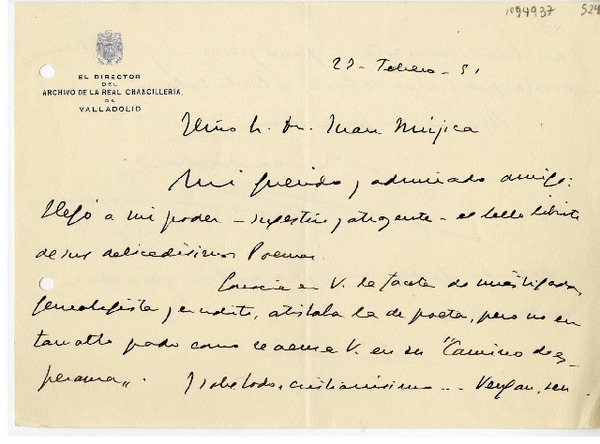 1094937
524
EL DIRECTOR
DEL
ARCHIVO DE LA REAL CHANCILLERÍA
DE
VALLADOLID
Febrero - 51
Juan Mújica
Mi querido y admirado amigo:
Llegó a mi poder - sugestivo y atrayente - el bello librito
de sus delicadísimos Poemas.
Conocía en V. la faceta de investigador,
genealogista y erudito, atisbaba la de poeta, pero no en
tan alto grado como se acusa V. en su "Camino de es-
peranza".  Y sobre todo, cristianísimo ...